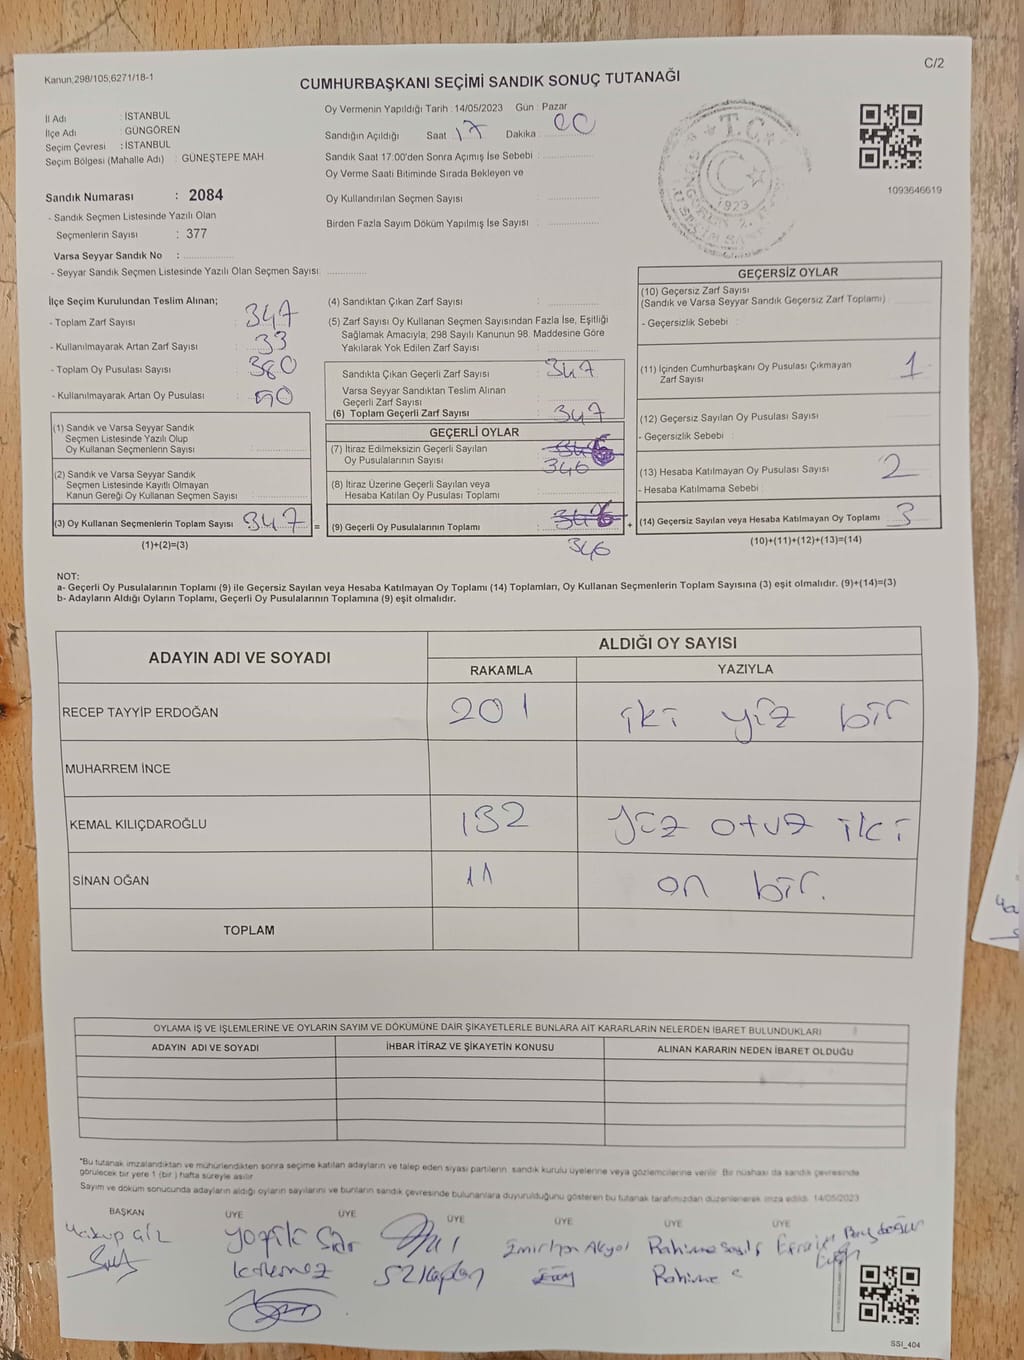 Kanun;298/105;6271/18-1
C/2
CUMHURBAŞKANI SEÇİMİ SANDIK SONUÇ TUTANAĞI
İl Adı : İSTANBUL
İlçe Adı : GÜNGÖREN
Seçim Çevresi : İSTANBUL
Seçim Bölgesi (Mahalle Adı) : GÜNEŞTEPE MAH
Sandık Numarası : 2084
- Sandık Seçmen Listesinde Yazılı Olan
Seçmenlerin Sayısı : 377
Varsa Seyyar Sandık No :
- Seyyar Sandık Seçmen Listesinde Yazılı Olan Seçmen Sayısı:
Oy Vermenin Yapıldığı Tarih : 14/05/2023 Gün : Pazar
Sandığın Açıldığı Saat 17 Dakika 00
Sandık Saat 17:00'den Sonra Açımış İse Sebebi :
Oy Verme Saati Bitiminde Sırada Bekleyon ve
Oy Kullandırılan Seçmen Sayısı :
Birden Fazla Sayım Döküm Yapılmış İse Sayısı :
T.C.
1923
1093646619
İlçe Seçim Kurulundan Teslim Alınan;
- Toplam Zarf Sayısı : 347
- Kullanılmayarak Artan Zarf Sayısı : 33
- Toplam Oy Pusulası Sayısı : 380
- Kullanılmayarak Artan Oy Pusulası :
(1) Sandık ve Varsa Seyyar Sandık
Seçmen Listesinde Yazılı Olup
Oy Kullanan Seçmenlerin Sayısı :
(2) Sandık ve Varsa Seyyar Sandık
Seçmen Listesinde Kayıtlı Olmayan
Kanun Gereği Oy Kullanan Seçmen Sayısı :
(3) Oy Kullanan Seçmenlerin Toplam Sayısı : 347 =
(1)+(2)=(3)
(4) Sandıktan Çıkan Zarf Sayısı :
(5) Zarf Sayısı Oy Kullanan Seçmen Sayısından Fazla İse, Eşitliği
Sağlamak Amacıyla, 298 Sayılı Kanunun 98. Maddesine Göre
Yakılarak Yok Edilen Zarf Sayısı :
Sandıkta Çıkan Geçerli Zarf Sayısı : 347
Varsa Seyyar Sandıktan Teslim Alınan
Geçerli Zarf Sayısı :
(6) Toplam Geçerli Zarf Sayısı : 347
GEÇERLİ OYLAR
(7) İtiraz Edilmeksizin Geçerli Sayılan
Oy Pusulalarının Sayısı : 346
(8) İtiraz Üzerine Geçerli Sayılan veya
Hesaba Katılan Oy Pusulası Toplamı :
(9) Geçerli Oy Pusulalarının Toplamı : +
346
GEÇERSİZ OYLAR
(10) Geçersiz Zarf Sayısı
(Sandık ve Varsa Seyyar Sandık Geçersiz Zarf Toplamı)
- Geçersizlik Sebebi :
(11) İçinden Cumhurbaşkanı Oy Pusulası Çıkmayan
Zarf Sayısı 1
(12) Geçersiz Sayılan Oy Pusulası Sayısı :
- Geçersizlik Sebebi :
(13) Hesaba Katılmayan Oy Pusulası Sayısı : 2
- Hesaba Katılmama Sebebi :
(14) Geçersiz Sayılan veya Hesaba Katılmayan Oy Toplamı : 3
(10)+(11)+(12)+(13)=(14)
NOT:
a- Geçerli Oy Pusulalarının Toplamı (9) ile Geçersiz Sayılan veya Hesaba Katılmayan Oy Toplamı (14) Toplamları, Oy Kullanan Seçmenlerin Toplam Sayısına (3) eşit olmalıdır. (9)+(14)=(3)
b- Adayların Aldığı Oyların Toplamı, Geçerli Oy Pusulalarının Toplamına (9) eşit olmalıdır.
ADAYIN ADI VE SOYADI ALDIĞI OY SAYISI
RAKAMLA YAZIYLA
RECEP TAYYİP ERDOĞAN 201 iki yüz bir
MUHARREM İNCE
KEMAL KILIÇDAROĞLU 132 Yüz otuz iki
SİNAN OĞAN 11 on bir.
TOPLAM
OYLAMA İŞ VE İŞLEMLERİNE VE OYLARIN SAYIM VE DÖKÜMÜNE DAİR ŞİKAYETLERLE BUNLARA AİT KARARLARIN NELERDEN İBARET BULUNDUKLARI
ADAYIN ADI VE SOYADI İHBAR İTİRAZ VE ŞİKAYETİN KONUSU ALINAN KARARIN NEDEN İBARET OLDUĞU
*Bu tutanak imzalandıktan ve mühürlendikten sonra seçime katılan adayların ve talep eden siyasi partilerin sandık kurulu üyelerine veya gözlemcilerine verilir. Bir nüshası da sandık çevresinde
görülecek bir yere 1 (bir) hafta süreyle asılır.
Sayım ve döküm sonucunda adayların aldığı oyların sayılarını ve bunların sandık çevresinde bulunanlara duyurulduğunu gösteren bu tutanak tarafımızdan düzenlenerek imza edildi. 14/05/2023
BAŞKAN ÜYE ÜYE ÜYE ÜYE ÜYE ÜYE
Yakup GİL
Korkmaz
Emirhan Akyol
Rahime
SSI_404